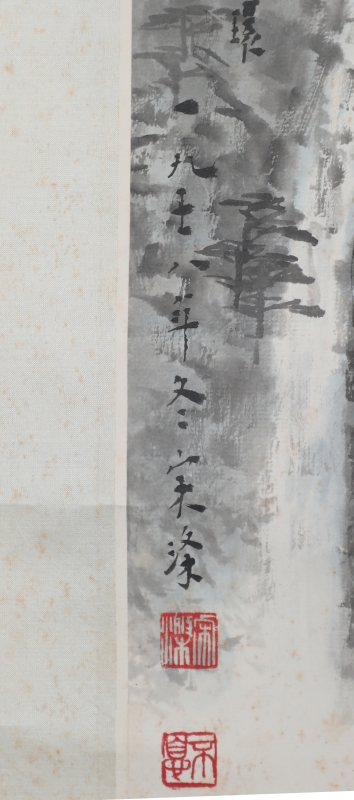 一九五八年冬宋涤
宋滌